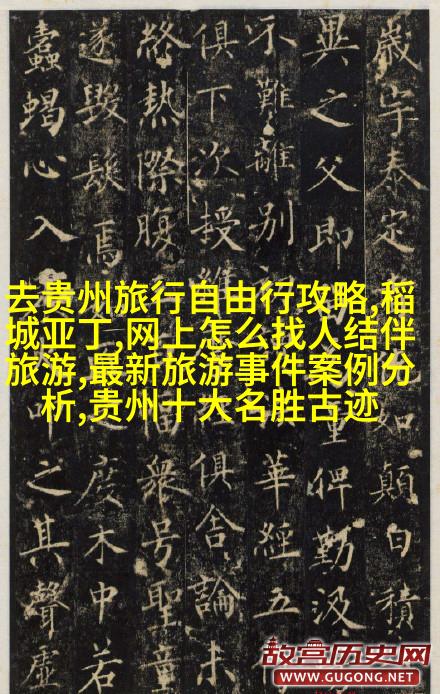 歲宇泰定如顛白積
異之父即童俾勤汲
不難離別華經五
俱下次授維俱舍論未
終熱際腹眾号聖童
遂毀焉度木中若
蠹蝎心入之其聲虛
去贵州旅行自由行攻略,稻
城亚丁,网上怎么找人结伴
旅游,最新旅游事件案例分
析,贵州十大名胜古迹
故宫历史网
WWW.GUGONG.NET